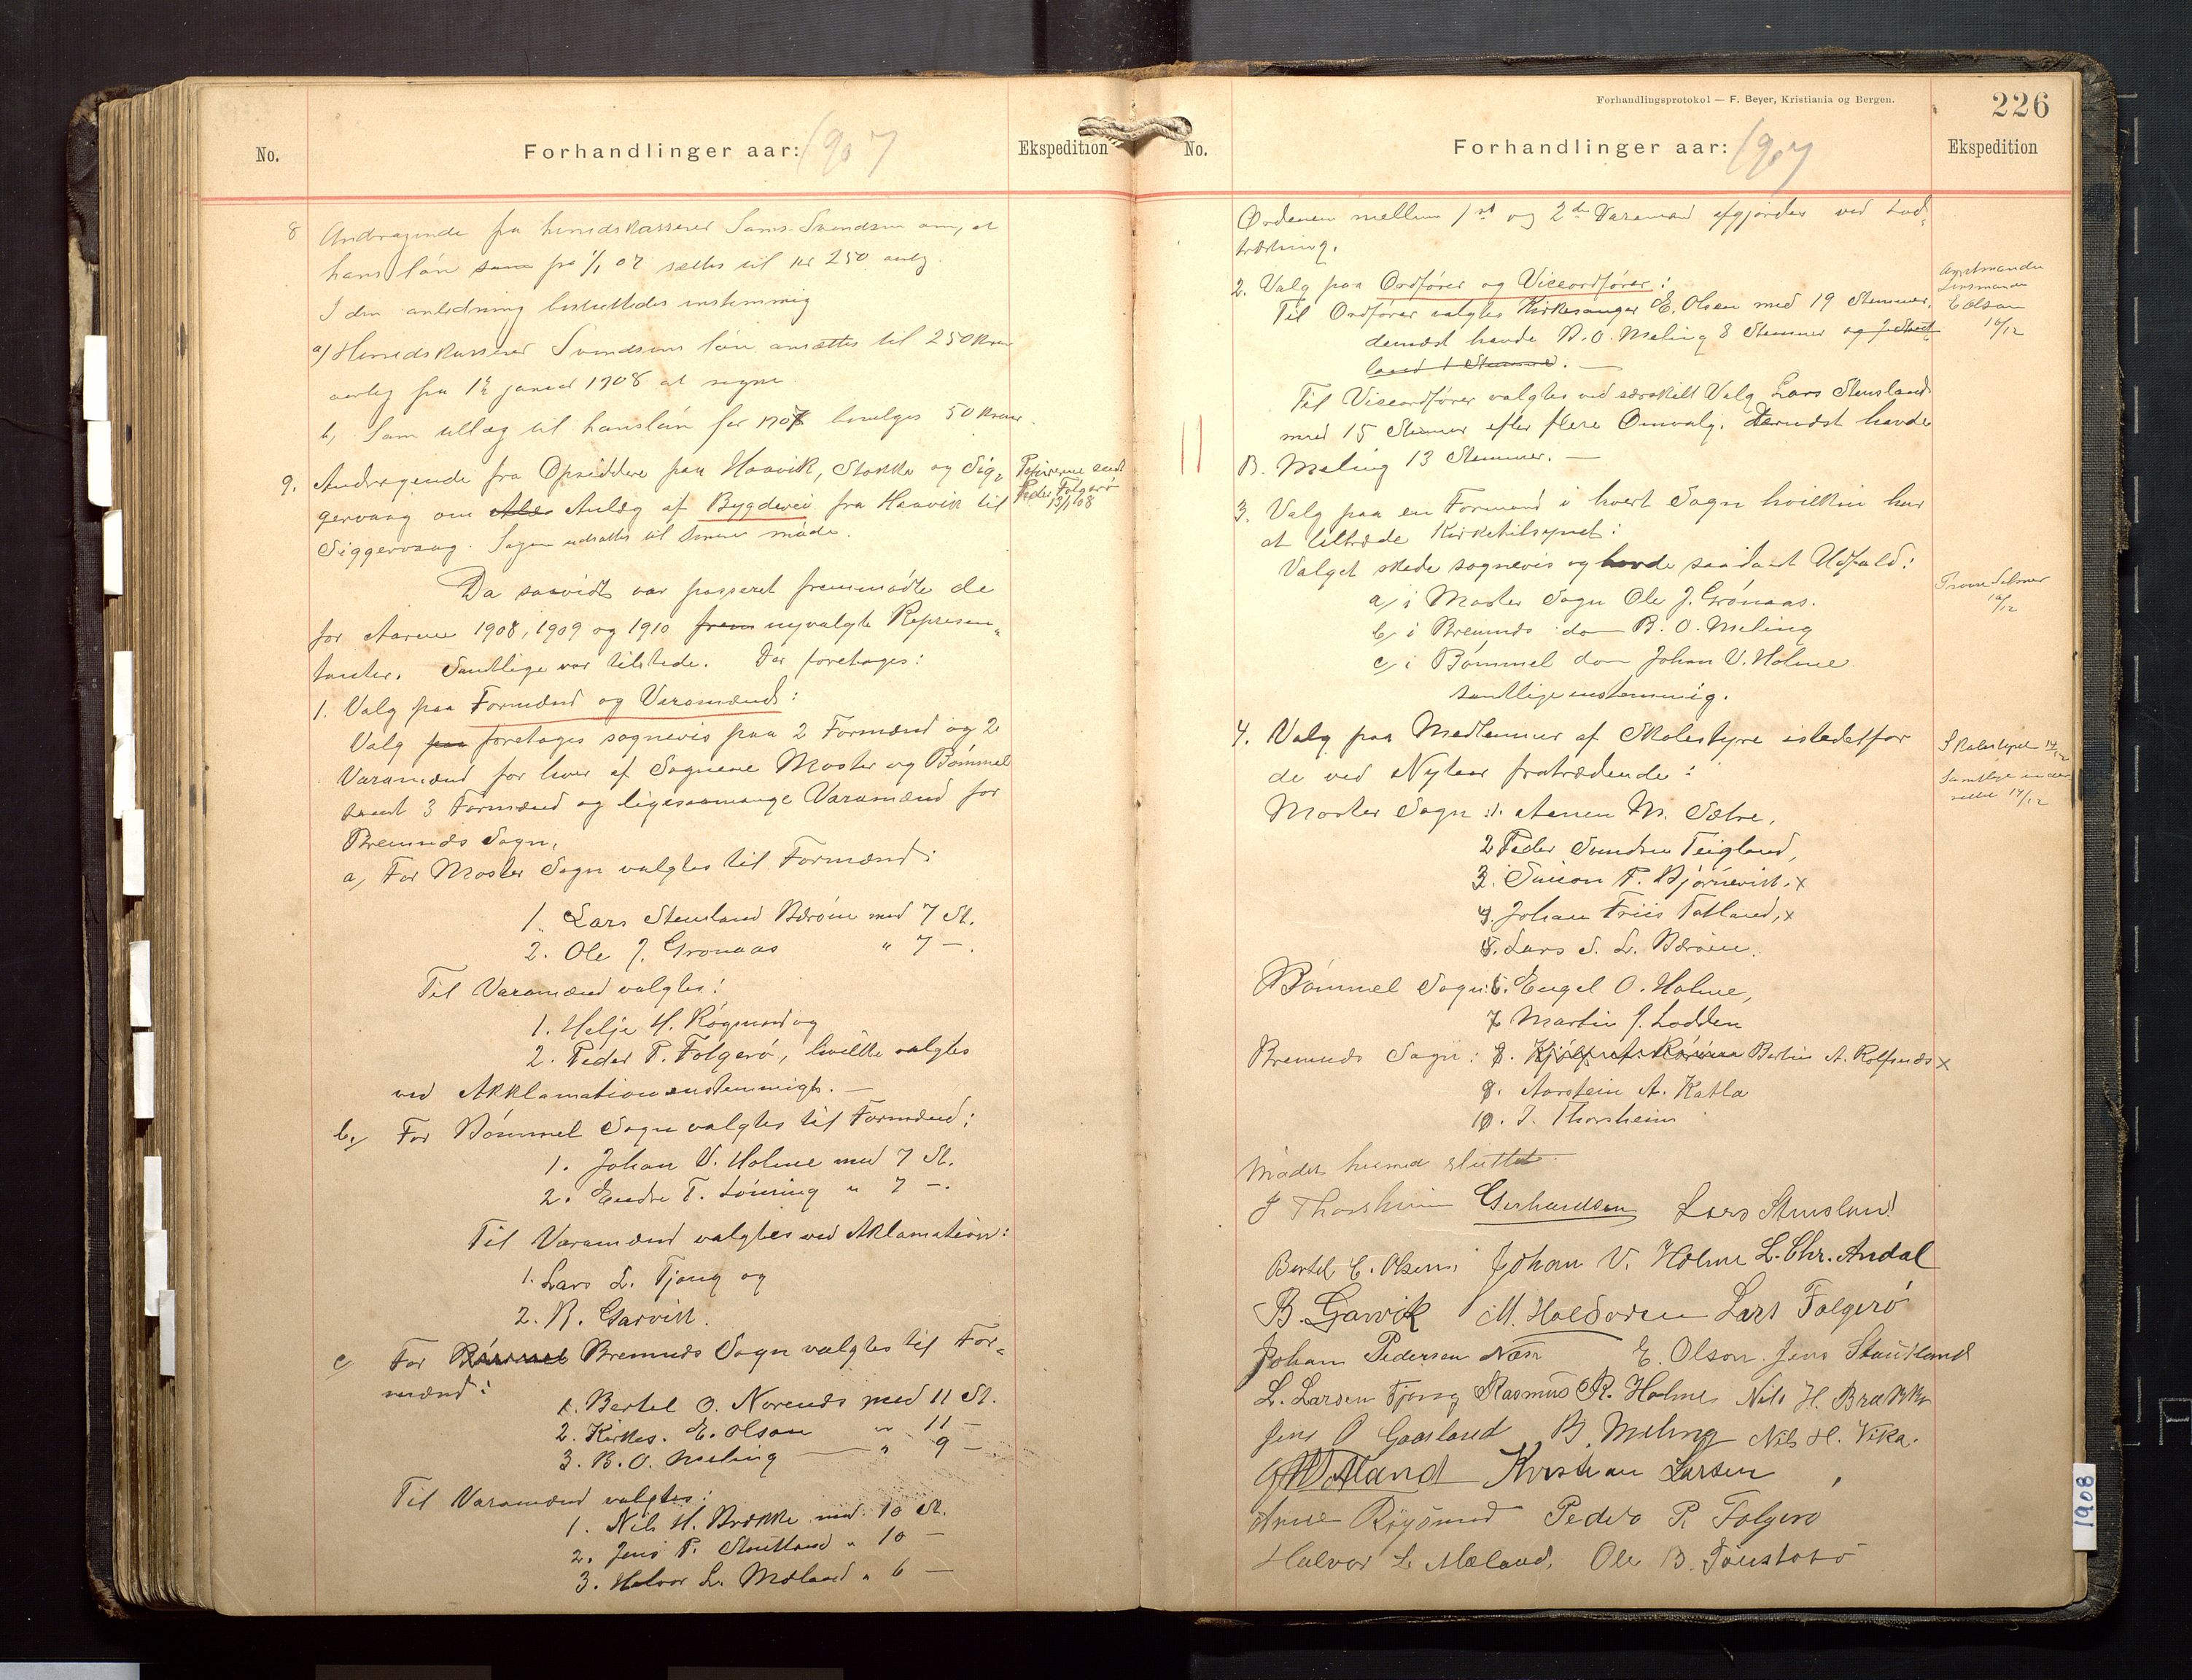 No.
Forhandlinger aar: 1907
Ekspedition
8 Andragende fra herredskasserer Sams. Svendsen om, at
hans løn fra 1/1 07 sættes til kr 250 aarlig.
I den anledning besluttedes enstemmig
a) Herredskasserer Svendsens løn ansættes til 250 Kroner
aarlig fra 1ste januar 1908 at regne.
b, Som tillæg til hans løn for 1907 bevilges 50 Kroner.
9. Andragende fra Opsiddere paa Haavik, Stokka og Sig-
gervaag om Anlæg af Bygdevei fra Haavik til
Siggervaag. Sagen udsattes til senere møde.
Papirerne sendt
Peder Folgerø
13/1 08
Da saavidt var passeret fremmødte de
for Aarene 1908, 1909 og 1910 frem nyvalgte Represen-
tanter. Samtlige var tilstede. Der foretoges:
1. Valg paa Formænd og Varamænd:
Valg paa foretoges sognevis paa 2 Formænd og 2
Varamænd for hver af Sognene Moster og Bømmel
samt 3 Formænd og ligesaamange Varamænd for
Bremnes Sogn.
a, For Moster Sogn valgtes til Formænd:
1. Lars Stensland Bærøen med 7 St.
2. Ole J. Grønaas " 7 –.
Til Varamænd valgtes:
1. Helje H. Røgsund og
2. Peder P. Folgerø, hvilke valgtes
ved Akklamation enstemmigt. –
b, For Bømmel Sogn valgtes til Formænd:
1. Johan V. Holme med 7 St.
2. Endre T. Lønning " 7 –.
Til Varamænd valgtes ved Aklamation:
1. Lars L. Tjong og
2. B. Garvik.
c, For Bømmel Bremnes Sogn valgtes til For-
mænd:
1. Bertel O. Norenæs med 11 St.
2. Kirkes. E. Olson " 11 –
3. B. O. Meling " 9 –
Til Varamænd valgtes:
1. Nils H. Brække med 10 St.
2. Jens P. Stautland " 10 –
3. Halvor L. Mæland " 6 –
Forhandlingsprotokol — F. Beyer, Kristiania og Bergen.
226
No.
Forhandlinger aar: 1907
Ekspedition
Ordenen mellem 1st og 2den Varamand afgjordes ved Lod-
trækning.
2. Valg paa Ordfører og Viceordfører:
Til Ordfører valgtes Kirkesanger E. Olsen med 19 Stemmer,
dernæst havde B. O. Meling 8 Stemmer og J. Staut-
land 1 Stemme. –
Amtmanden
Lensmanden
E Olson
16/12
Til Viceordfører valgtes ved særskilt Valg Lars Stensland
med 15 Stemmer efter flere Omvalg. Dernæst havde
B. Meling 13 Stemmer. –
3. Valg paa en Formand i hvert Sogn hvilken har
at tiltræde Kirketilsynet:
Valget skede sognevis og havde saadant Udfald:
a, i Moster Sogn Ole J. Grønaas.
b, i Bremnes do B. O. Meling
c, i Bømmel do Johan V. Holme.
samtlige enstemmig.
16/12
4. Valg paa Medlemmer af Skolestyre istedetfor
de ved Nytaar fratrædende:
Skolestyret 14/12
Samtlige under-
rettet 14/12
Moster Sogn: 1. Aamen M. Sætre,
2 Peder Svendsen Teigland,
3. Simon T. Bjørnevik. x
4. Johan Friis Totland, x
5. Lars S. L. Bærøen.
Bømmel Sogn: 6. Engel O. Holme,
7 Martin J. Lodden
Bremnes Sogn: 8. Bertin A. Rolfsnæs x
9. Aarstein A. Katla
10. I. Thorsheim
Mødet hermed sluttet.
I Thorsheim Gerhardsen Lars Stensland
Bertel E. Olsen. Johan V. Holme L. Chr. Andal
B. Garvik M. Halvorsen Lars Folgerø
Johan Pedersen Næse E. Olson. Jens Stautland
L. Larsen Tjong Rasmus R. Holme Nils H. Brække
Jens O Gaasland B. Meling Nils H. Vika.
Kristian Larsen
Røgsund Peder P. Folgerø
Halvor L. Mæland. Ole B.
1908